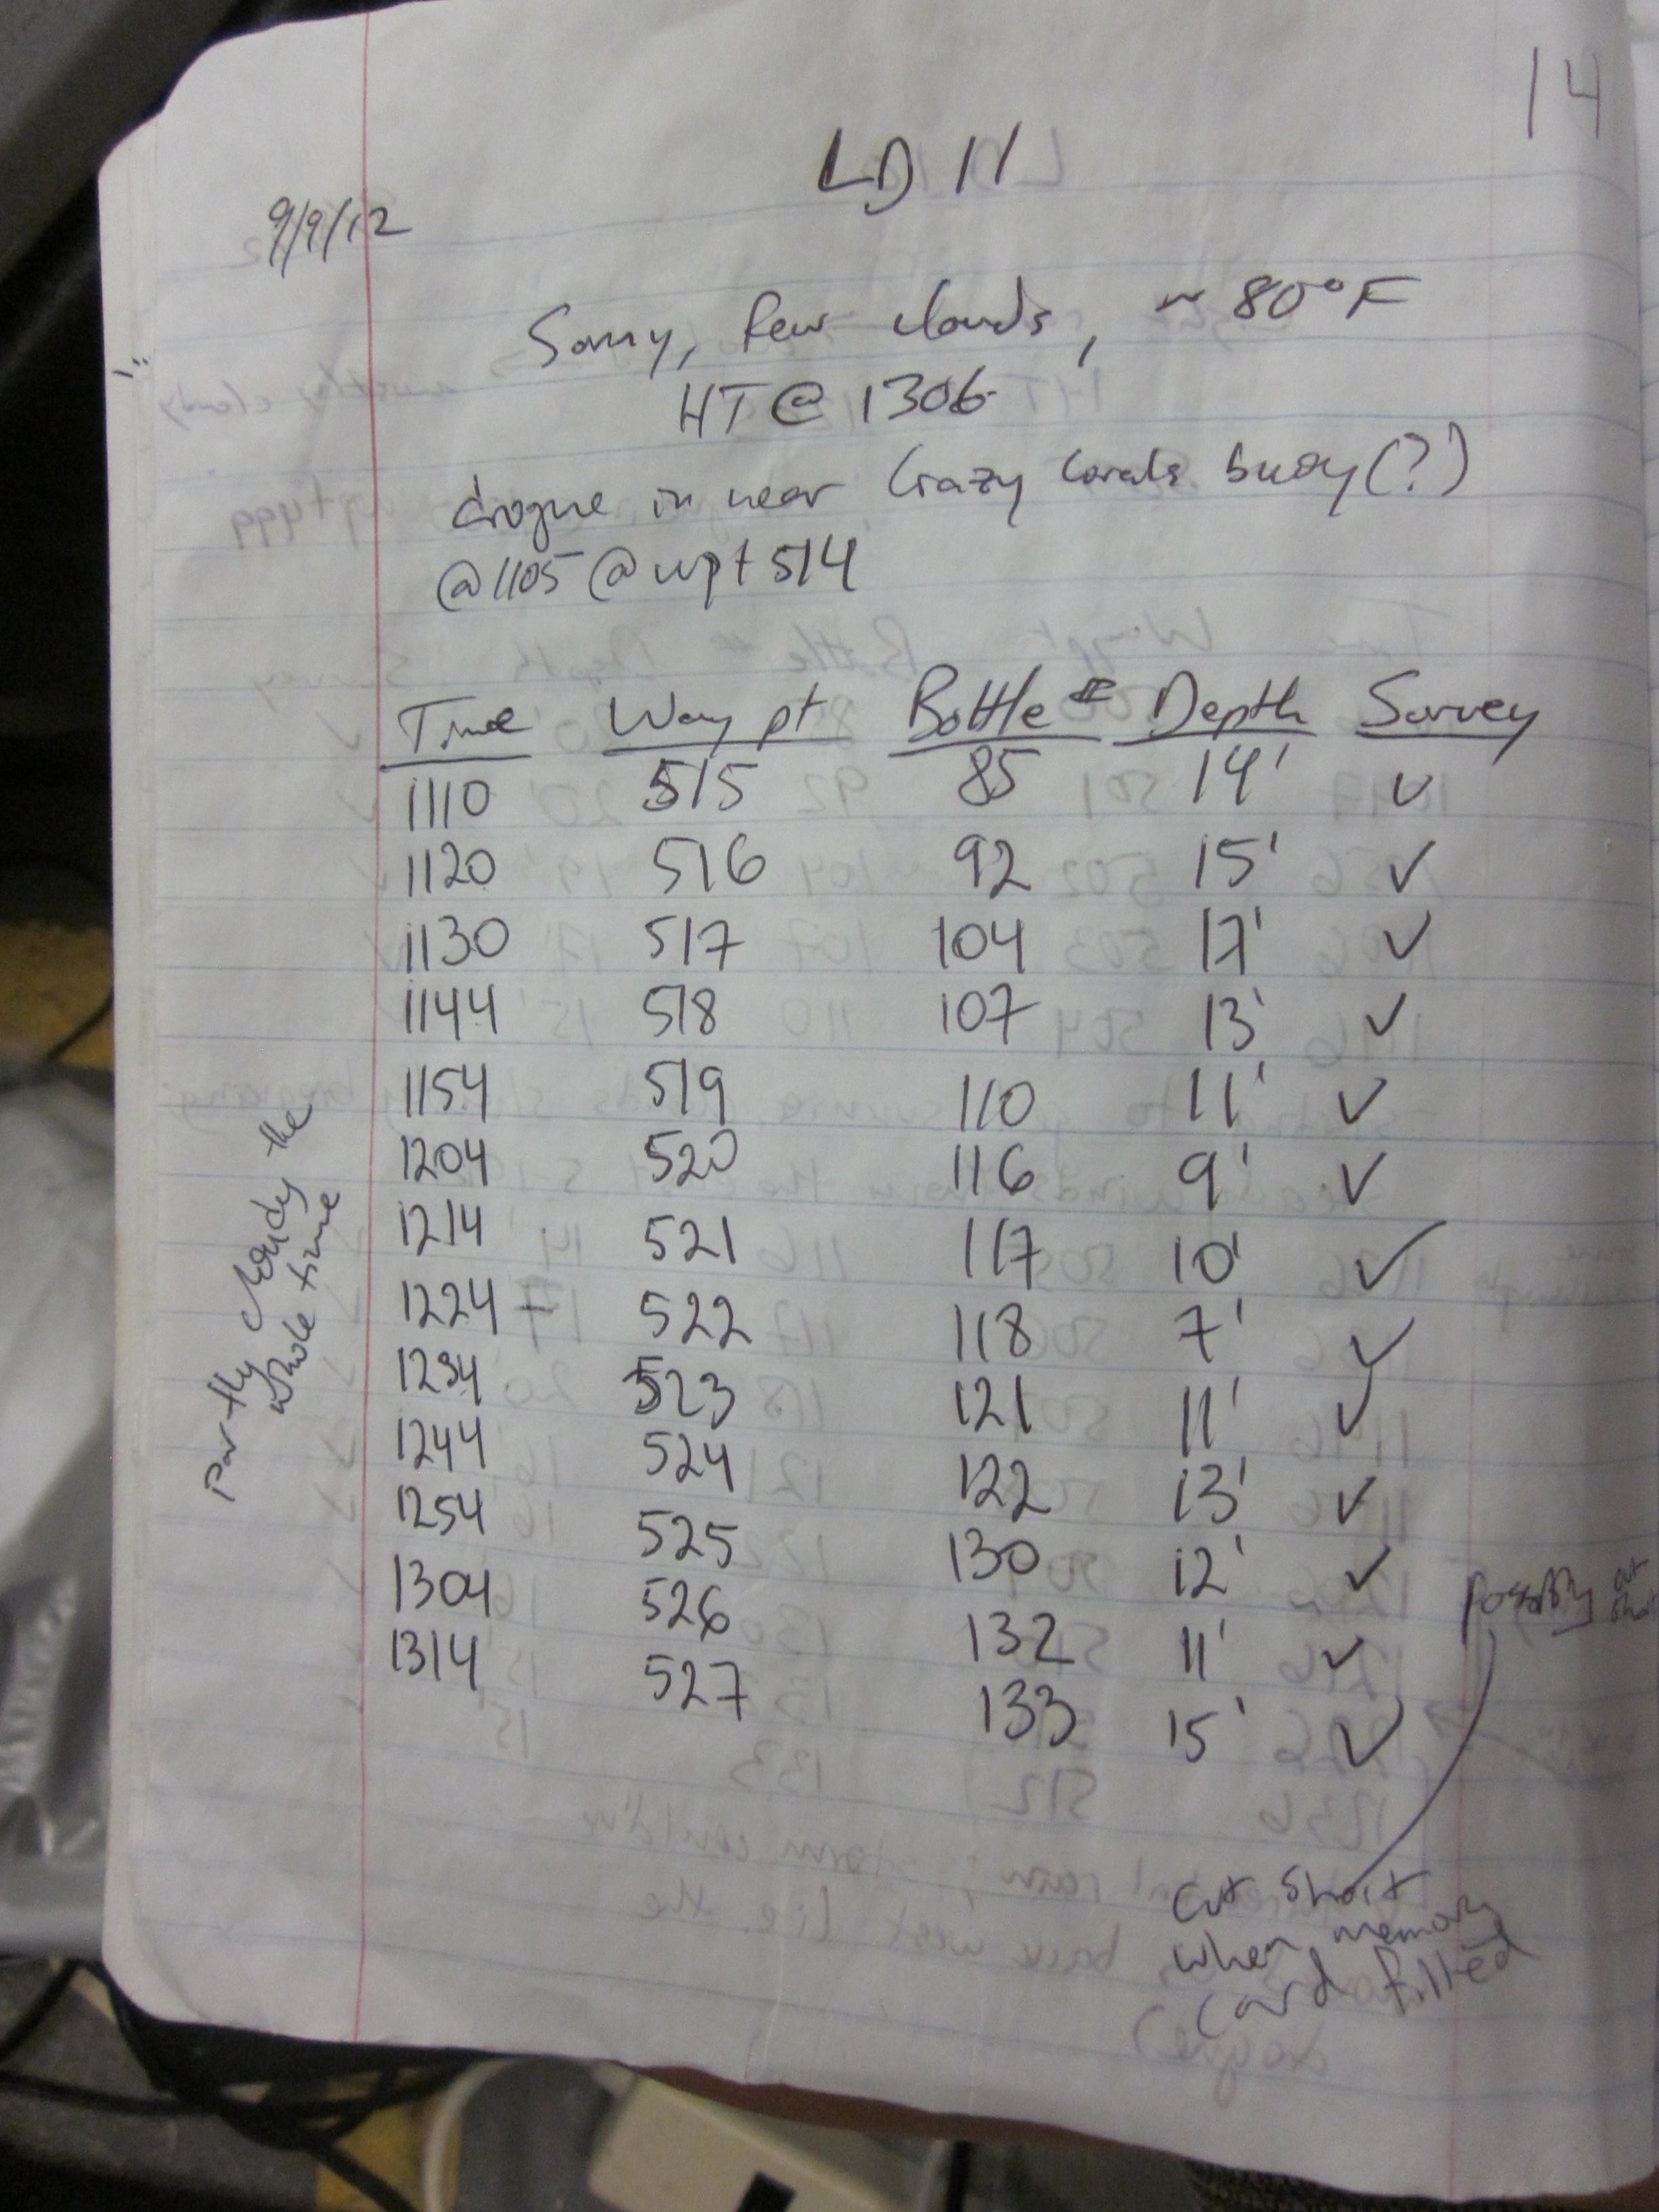 14
LD 11
9/9/12
Sunny, few clouds, ~ 80°F
HT @ 1306
drogue in near Crazy Corals buoy(?)
@1105 @ wpt 514
Time Way pt Bottle # Depth Survey
1110 515 85 14' ✓
1120 516 92 15' ✓
1130 517 104 17' ✓
1144 518 107 13' ✓
1154 519 110 11' ✓
1204 520 116 9' ✓
1214 521 117 10' ✓
1224 522 118 7' ✓
1234 523 121 11' ✓
1244 524 122 13' ✓
1254 525 130 12' ✓
1304 526 132 11' ✓
1314 527 133 15' ✓
Partly cloudy the
whole time
possibly cut
short
cut short
when memory
card filled